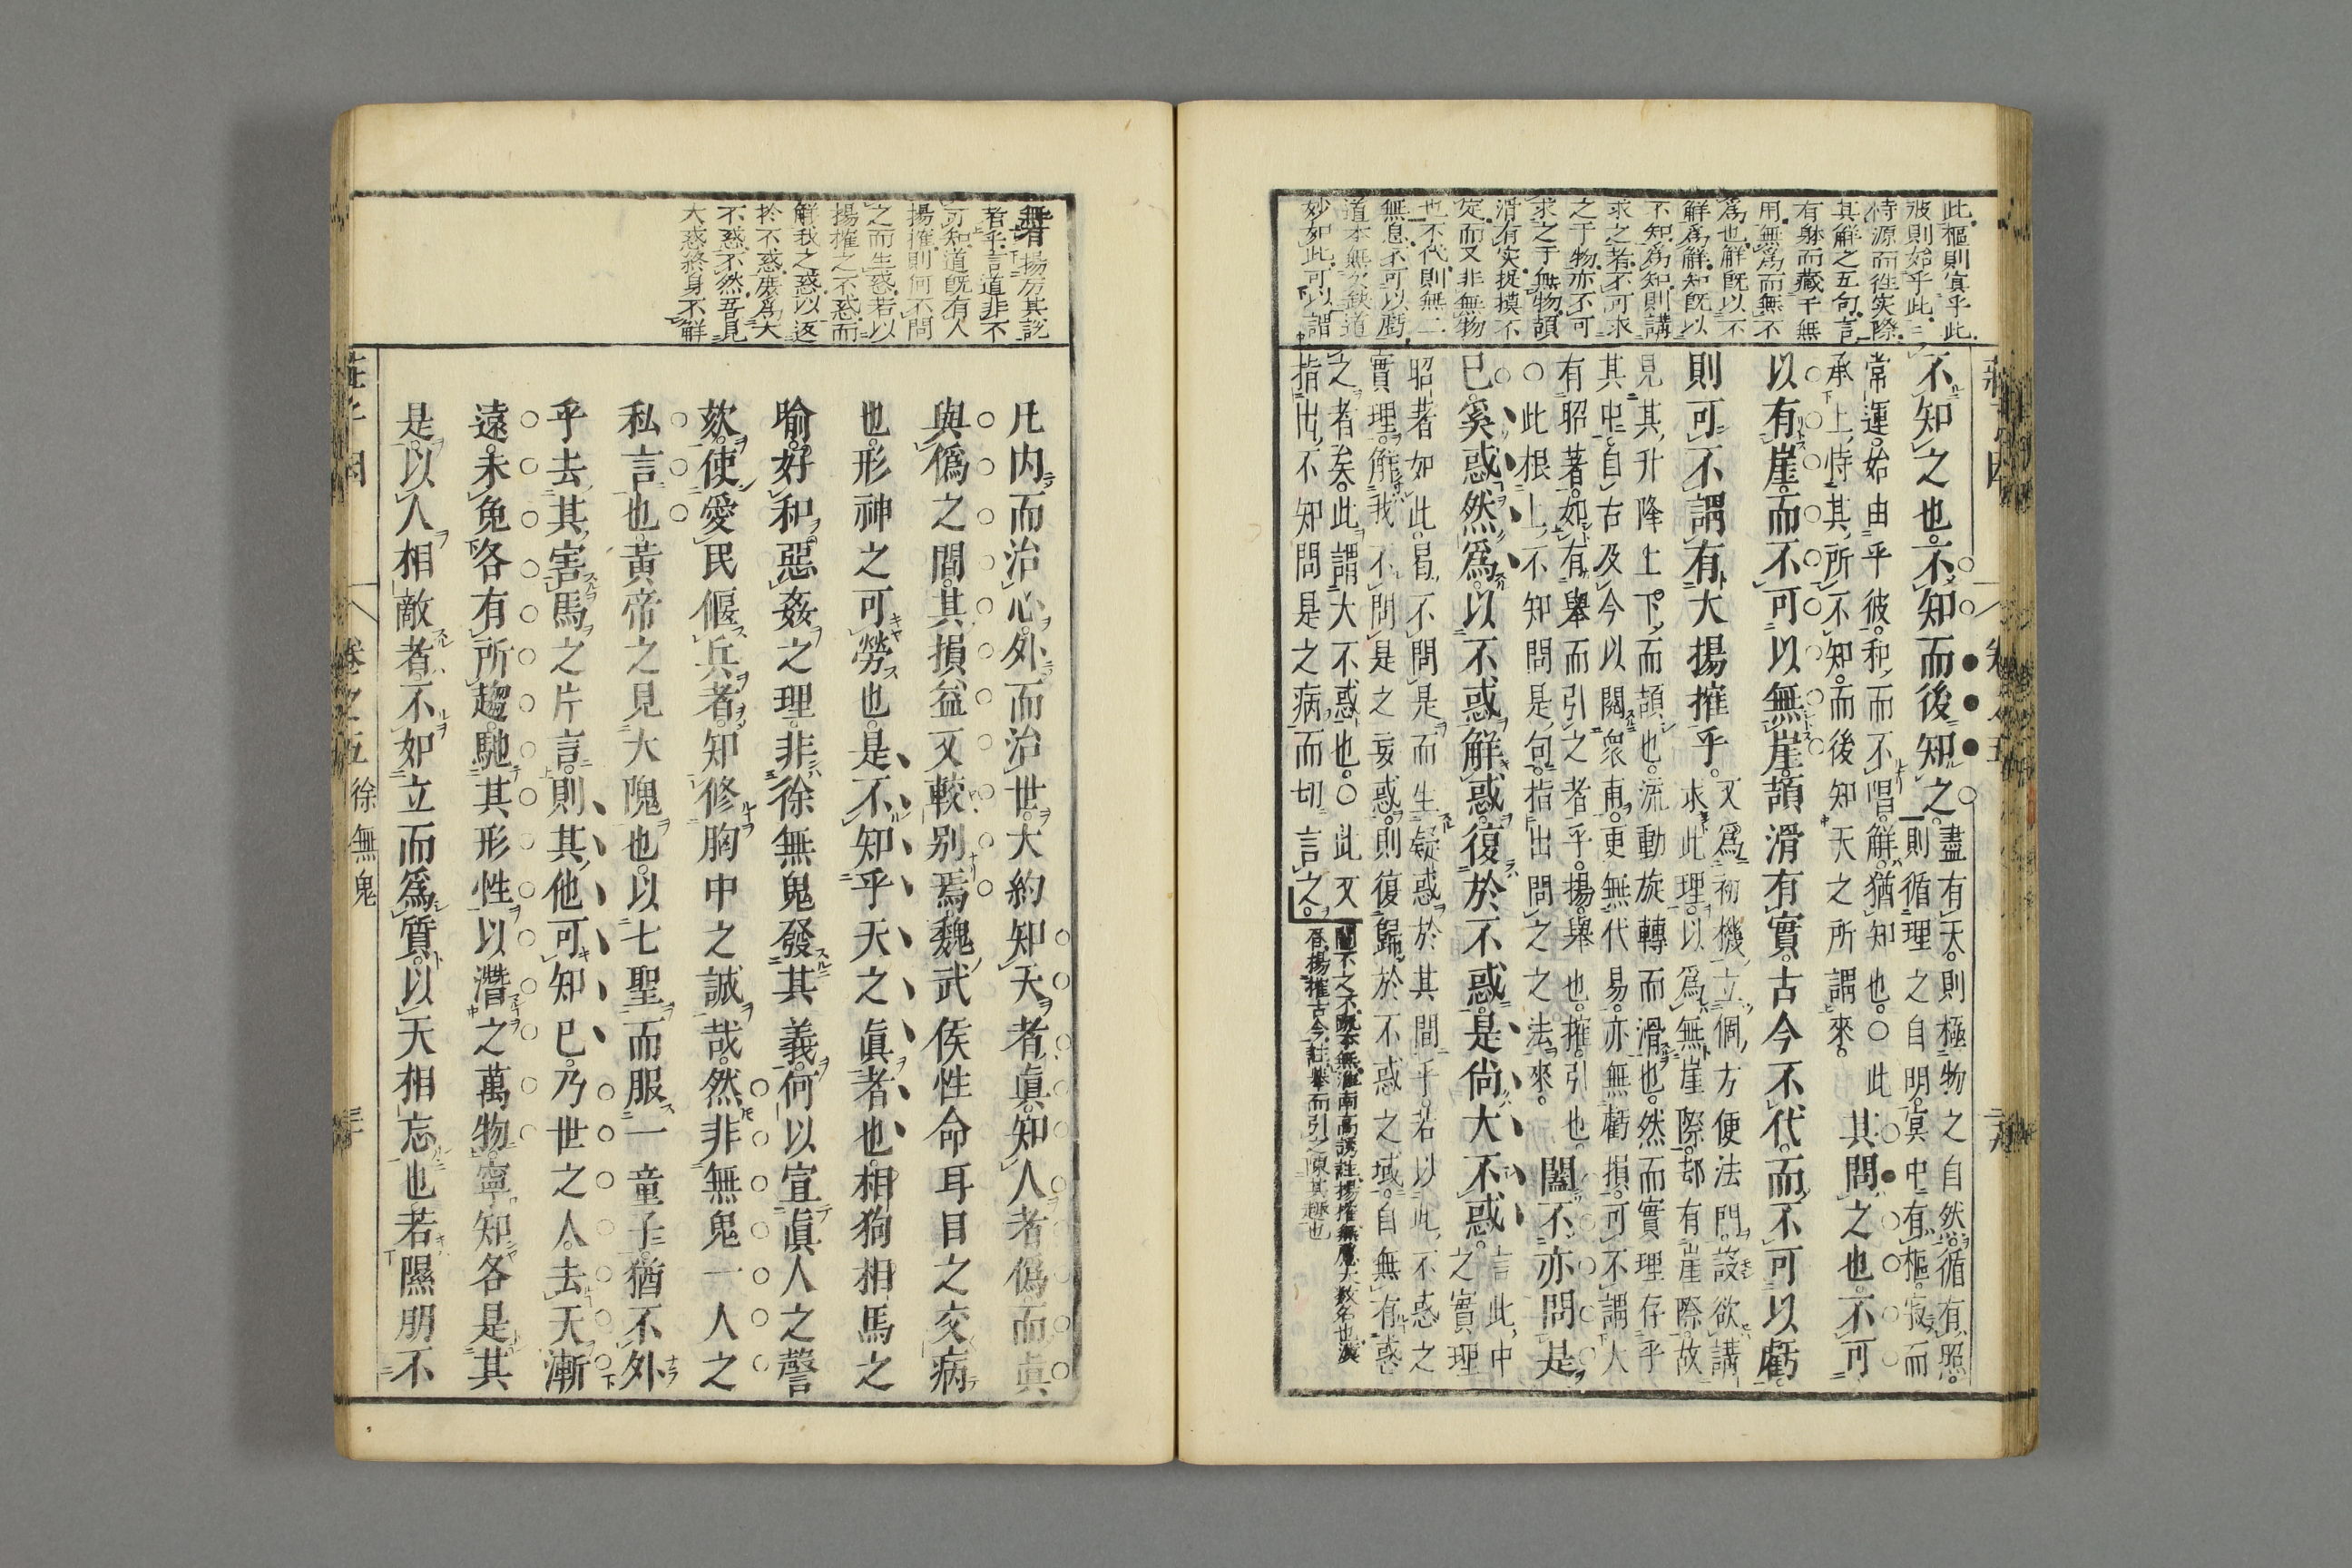 此樞則冥乎此
彼則始乎此三
恃源而往実際
其解之五句言
有躰而藏千無
用無爲而無不
爲也解既以不
解爲解知既以
不知爲知則講
求之者不可求
之于物亦不可
求之于無物頡
滑有実捉摸不
定而又非無物
也不代則無一
無息不可以虧
道本無欠缺道
妙如此可以謂
不知之也不知而後知之
盡有天則極物之自然循有照
則循理之自明冥中有樞寂而
常運始由乎彼和而不唱解猶知也○此
承上恃其所不知而後知天之所謂來
其問之也不可
以有崖而不可以無崖頡滑有實古今不代而不可以虧
則可不謂有大揚搉乎
又爲初機立個方便法門設欲講
求此理以爲無崖際却有崖際故
見其升降上下而頡也流動旋轉而滑也然而實理存乎
其中自古及今以閱衆甫更無代易亦無虧損可不謂大
有昭著如有舉而引之者乎揚舉也搉引也
○此根上不知問是句指出問之之法來
闔不亦問是
已奚惑然爲以不惑解惑復於不惑是尙大不惑
言此中
之實理
昭著如此曷不問是而生疑惑於其間乎若以此不惑之
實理解我不問是之妄惑則復歸於不惑之域自無有惑
之者矣此謂大不惑也○此又
指出不知問是之病而切言之
無者揚㩁其説
者乎言道非不
可知道既有人
揚搉則何不問
之而生惑若以
揚搉之不惑而
解我之惑以返
於不惑庶爲大
不惑不然吾見
大惑終身不解
凡内而治心外而治世大約知天者眞知人者僞而眞
與僞之間其損益又較別焉魏武侯性命耳目之交病
也形神之可勞也是不知乎天之眞者也相狗相馬之
喻好和惡姦之理非徐無鬼發其義何以宣眞人之謦
欬使愛民偃兵者知修胸中之誠哉然非無鬼一人之
私言也黃帝之見大隗也以七聖而服一童子猶不外
乎去其害馬之片言則其他可知已乃世之人去天漸
遠未免各有所趨馳其形性以潛之萬物寧知各是其
是以人相敵者不如立而爲質以天相忘也若隰朋不
卷之五 徐無鬼